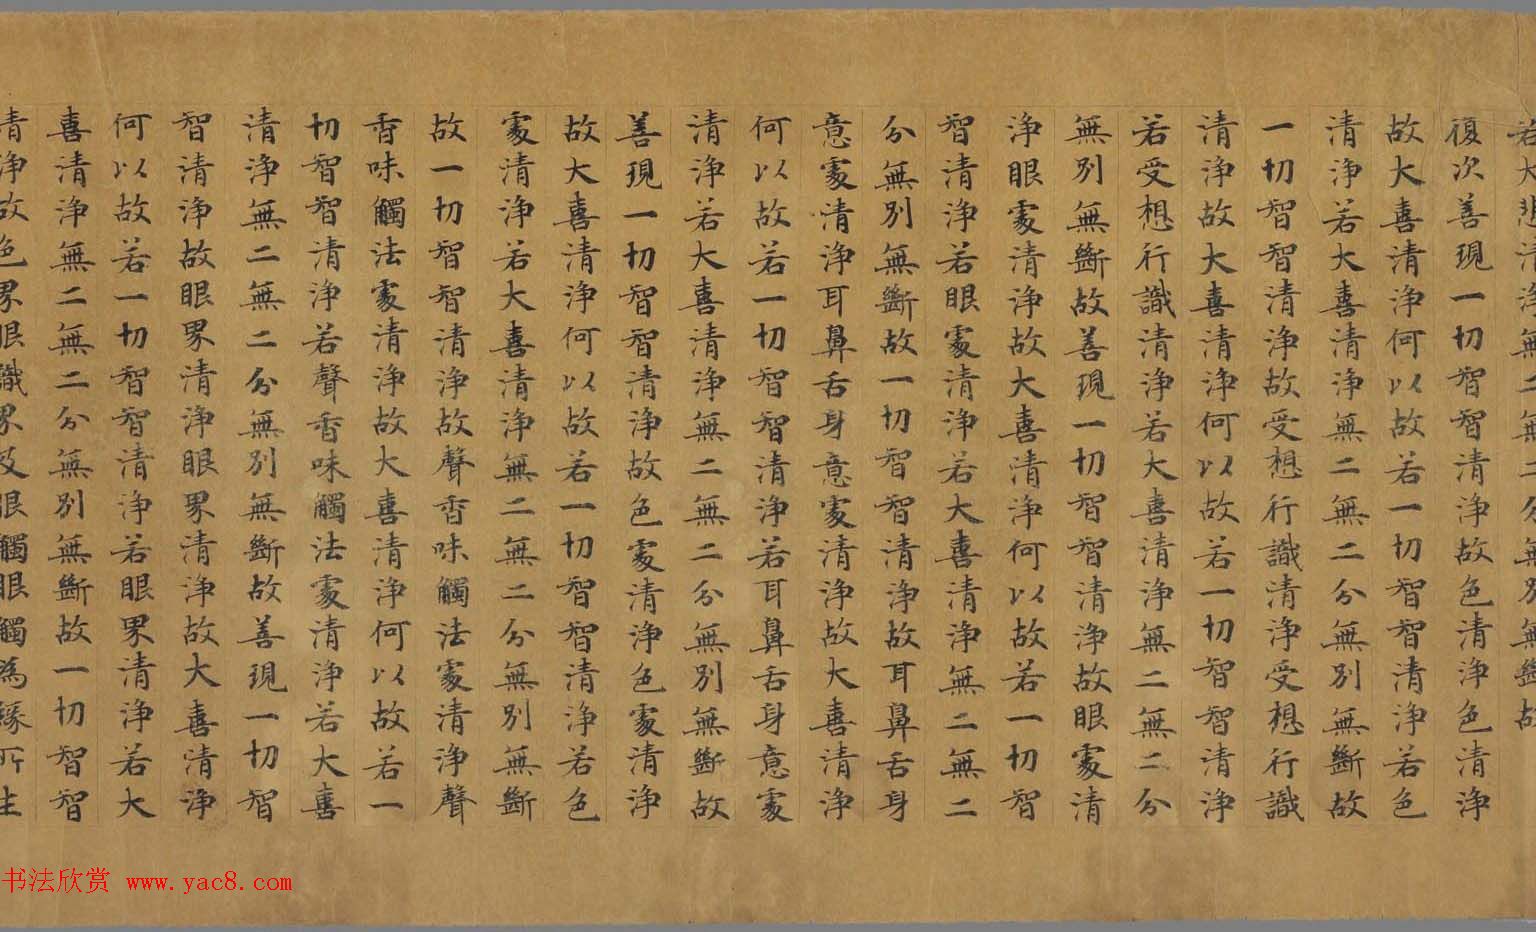 若大悲清淨無二無二分無別無斷故
復次善現一切智智清淨故色清淨色清淨
故大喜清淨何以故若一切智智清淨若色
清淨若大喜清淨無二無二分無別無斷故
一切智智清淨故受想行識清淨受想行識
清淨故大喜清淨何以故若一切智智清淨
若受想行識清淨若大喜清淨無二無二分
無別無斷故善現一切智智清淨故眼處清
淨眼處清淨故大喜清淨何以故若一切智
智清淨若眼處清淨若大喜清淨無二無二
分無別無斷故一切智智清淨故耳鼻舌身
意處清淨耳鼻舌身意處清淨故大喜清淨
何以故若一切智智清淨若耳鼻舌身意處
清淨若大喜清淨無二無二分無別無斷故
善現一切智智清淨故色處清淨色處清淨
故大喜清淨何以故若一切智智清淨若色
處清淨若大喜清淨無二無二分無別無斷
故一切智智清淨故聲香味觸法處清淨聲
香味觸法處清淨故大喜清淨何以故若一
切智智清淨若聲香味觸法處清淨若大喜
清淨無二無二分無別無斷故善現一切智
智清淨故眼界清淨眼界清淨故大喜清淨
何以故若一切智智清淨若眼界清淨若大
喜清淨無二無二分無別無斷故一切智智
清淨故色界眼識界及眼觸眼觸為緣所生
书法欣赏 www.yac8.com